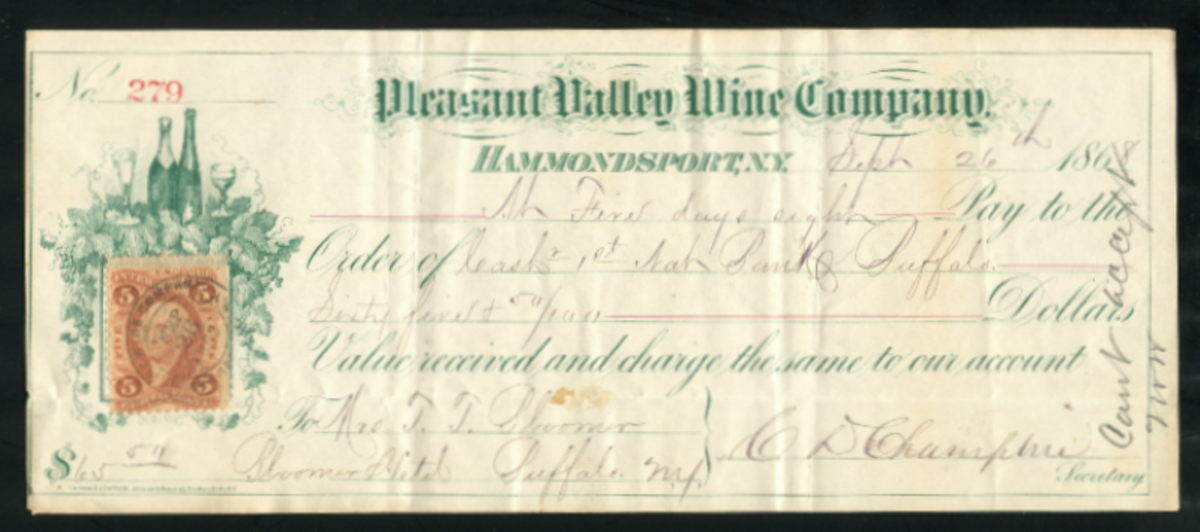 No. 279
Pleasant Valley Wine Company.
HAMMONDSPORT, N.Y. Sept 26th 1868
At Five days sight Pay to the
Order of Cashr 1st Nat Bank Buffalo
Sixty five & 50/100 Dollars
Value received and charge the same to our account
To Mrs T. T. Bloomer
$65 50 Bloomer Hotel Buffalo N.Y.
C D Champlin
Secretary
Cant accept
5 5
5 5